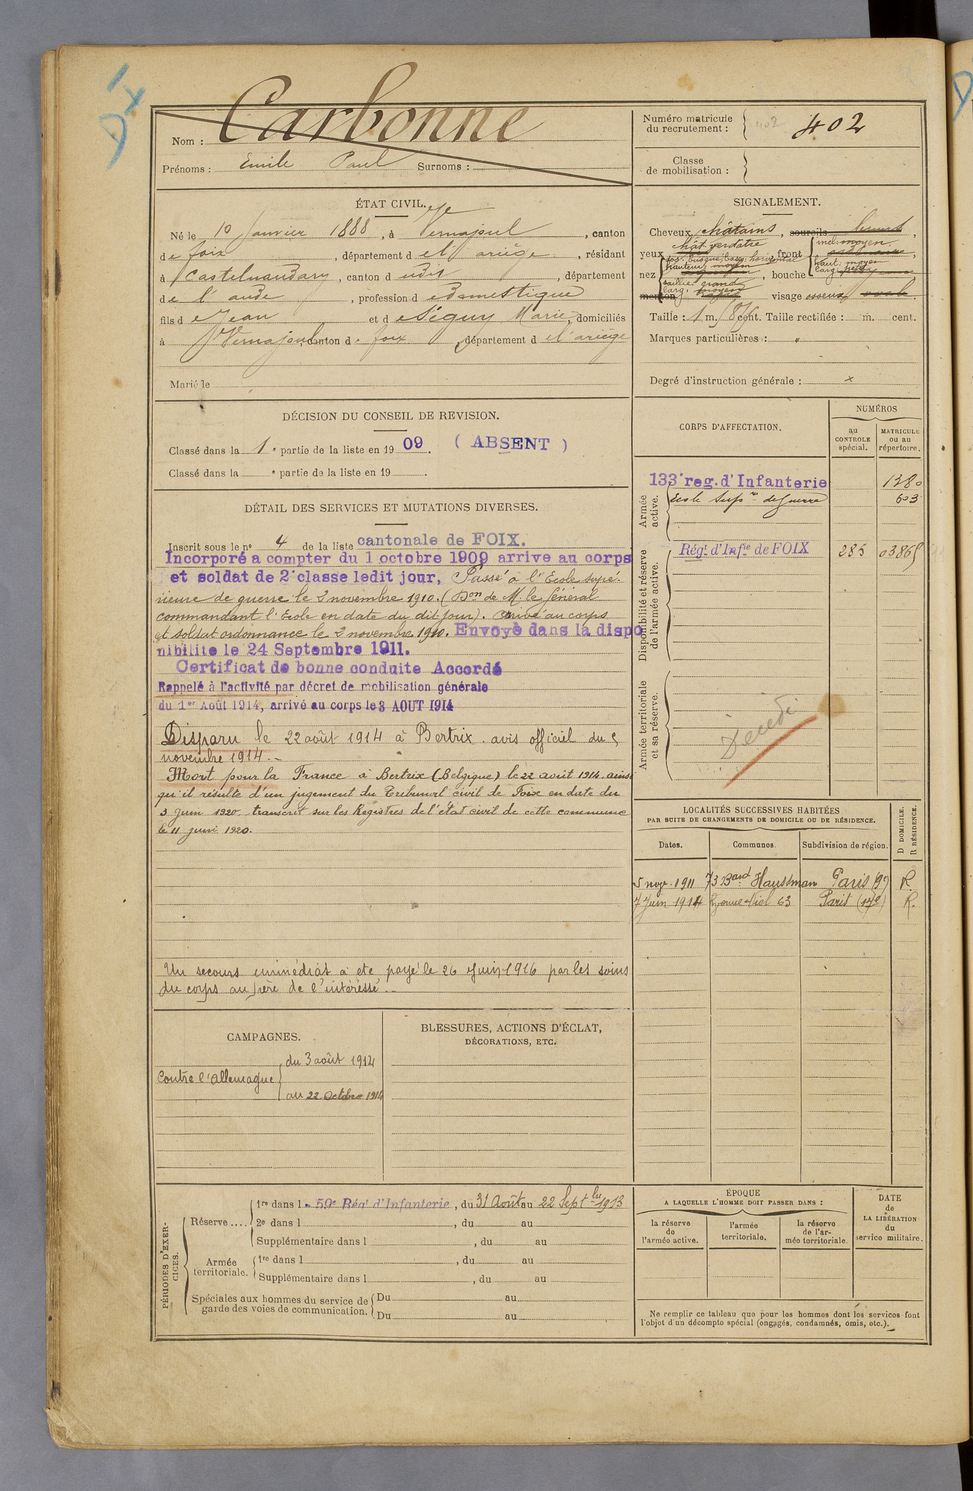 Nom : Carbonne
Prénoms : Emile Paul Surnoms :
Numéro matricule du recrutement : 402 402
Classe de mobilisation :
ÉTAT CIVIL.
Né le 10 Janvier 1888, à Vernajoul, canton
de foix, département de l'ariège, résidant
à Castelnaudary, canton d udit, département
de l'aude, profession de Domestique
fils de Jean et de Séguy Marie, domiciliés
à Vernajoul canton de foix, département de l'ariège
Marié le
SIGNALEMENT.
Cheveux châtains, sourcils bruns,
yeux chât. verdâtre, front incl. moyen
nez haut. moyen, bouche
menton visage osseux ovale.
Taille : 1 m. cent. Taille rectifiée : m. cent.
Marques particulières : "
Degré d'instruction générale : x
DÉCISION DU CONSEIL DE REVISION.
Classé dans la 1e partie de la liste en 1909. (ABSENT)
Classé dans la e partie de la liste en 19 .
CORPS D'AFFECTATION.
NUMÉROS
au CONTROLE spécial.
MATRICULE ou au répertoire.
Armée active.
133e reg. d'Infanterie 1280
École Supre de Guerre 603
Disponibilité et réserve de l'armée active.
Régt d'Infie de FOIX 285
Armée territoriale et sa réserve.
Décédé
DÉTAIL DES SERVICES ET MUTATIONS DIVERSES.
Inscrit sous le n° 4 de la liste cantonale de FOIX.
Incorporé a compter du 1 octobre 1909 arrive au corps
et soldat de 2e classe ledit jour, Passé à l'Ecole supé-
rieure de guerre le 2 novembre 1910. (Don de M. le Général
commandant l'Ecole en date du dit jour). Arrivé au corps
et soldat ordonnance le 2 novembre 1910. Envoyé dans la dispo
nibilite le 24 Septembre 1911.
Certificat de bonne conduite Accordé
Rappelé à l'activité par décret de mobilisation générale
du 1er Août 1914, arrivé au corps le 3 AOUT 1914
Disparu le 22 août 1914 à Bertrix. avis officiel du 5
novembre 1914.-
Mort pour la France à Bertrix (Belgique) le 22 août 1914. ainsi
qu'il résulte d'un jugement du Tribunal civil de Foix en date du
3 Juin 1920, transcrit sur les Registres de l'état civil de cette commune
le 11 juin 1920.
Un secours immédiat a été payé le 26 Juin 1916 par les soins
du corps au père de l'intéressé.-
LOCALITÉS SUCCESSIVES HABITÉES
PAR SUITE DE CHANGEMENTS DE DOMICILE OU DE RÉSIDENCE.
Dates. Communes. Subdivision de région. D DOMICILE. R RÉSIDENCE.
5 nov. 1911 73 Bard Haussman Paris (9e) R.
7 Juin 1914 63 Paris (17e) R.
CAMPAGNES.
Contre l'Allemagne
du 3 août 1914
au 22 Octobre 1914
BLESSURES, ACTIONS D'ÉCLAT,
DÉCORATIONS, ETC.
PÉRIODES D'EXERCICES.
Réserve....
1re dans le 59e Régt d'Infanterie, du 31 Août au 22 Septbre 1913
2e dans l , du au
Supplémentaire dans l , du au
Armée territoriale.
1re dans l , du au
Supplémentaire dans l , du au
Spéciales aux hommes du service de garde des voies de communication.
Du au
Du au
ÉPOQUE
A LAQUELLE L'HOMME DOIT PASSER DANS :
la réserve de l'armée active.
l'armée territoriale.
la réserve de l'armée territoriale.
DATE de LA LIBÉRATION du service militaire.
Ne remplir ce tableau que pour les hommes dont les services font
l'objet d'un décompte spécial (engagés, condamnés, omis, etc.).